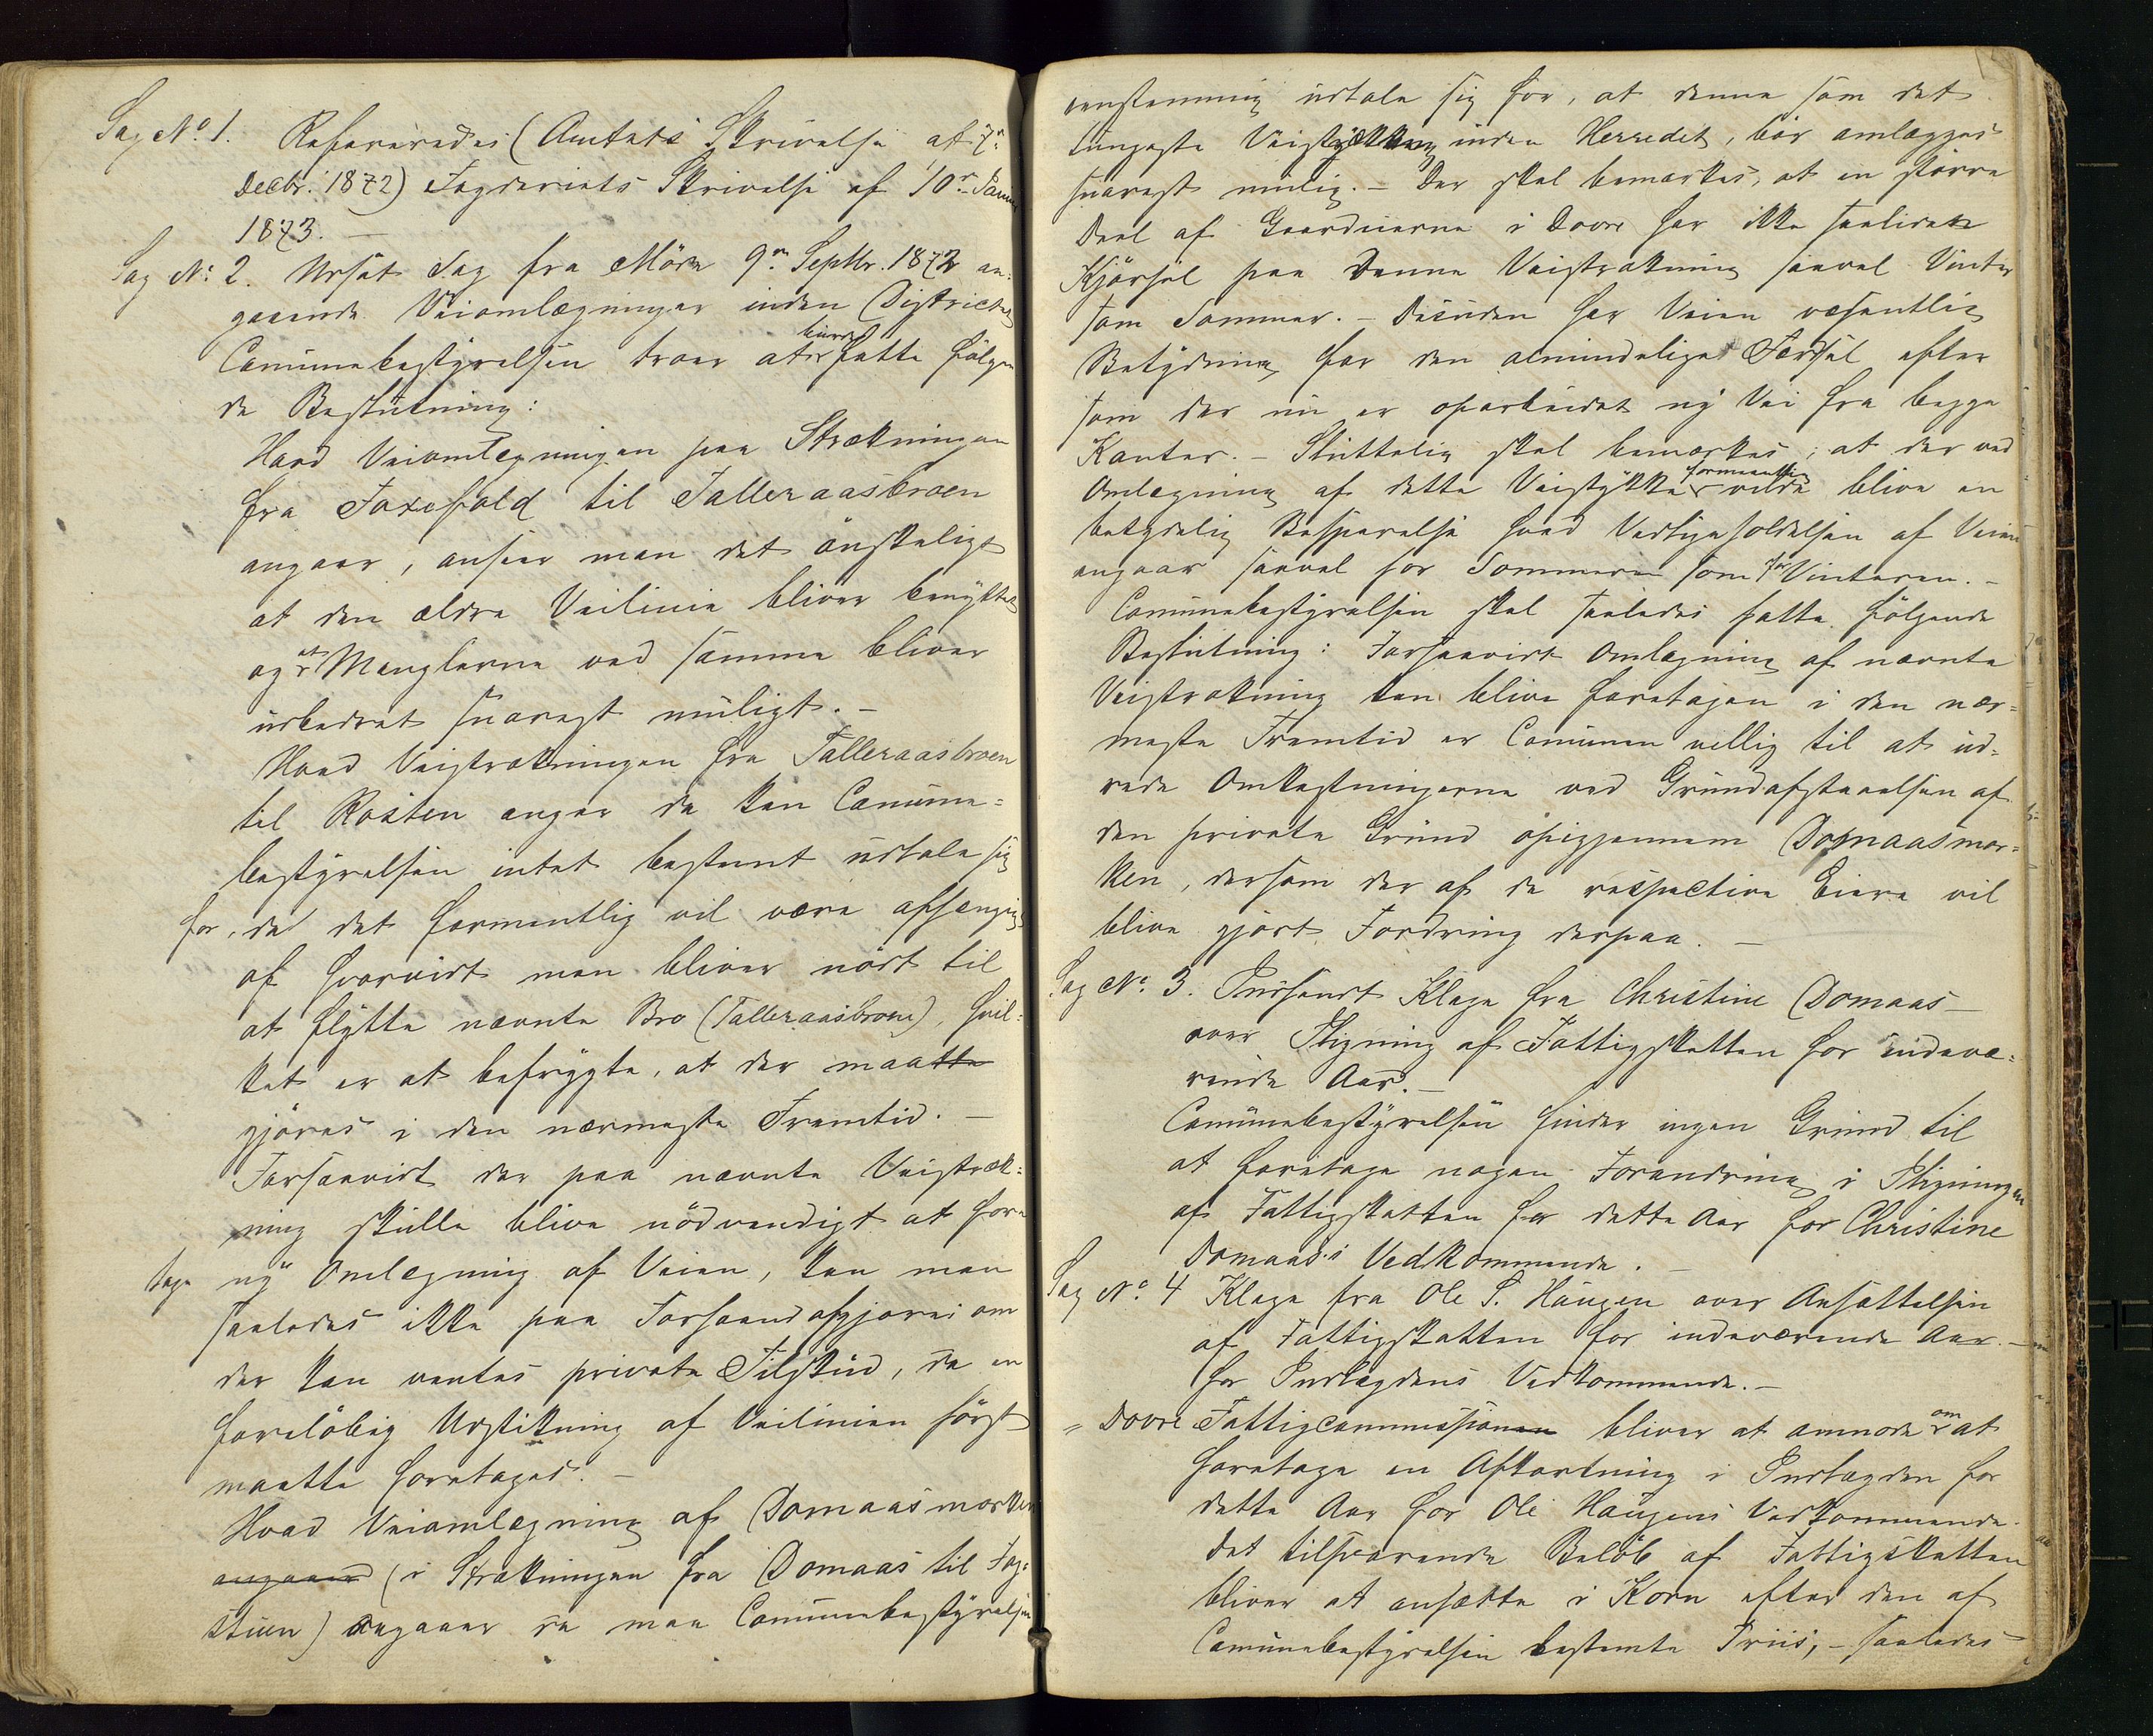 Sag No 1. Refereredes (Amtets Skrivelse af 7de
Decbr. 1872) Fogderiets Skrivelse af 10de Januar
1873. –
Sag No 2. Udsat Sag fra Møde 9de Septbr. 1872 an-
gaaende Veiomlægninger inden Districtet
Comunebestyrelsen troer at burde fatte følgen
de Beslutning:
Hvad Veiomlægningen paa Strækningen
fra Toxefald til Talleraasbroen
angaar, anseer man det ønskeligt
at den ældre Veilinie bliver benyttet
og at Manglerne ved samme bliver
udbedret snarest muligt. –
Hvad Veistrækningen fra Talleraasbroen
til Rosten angaar da kan Comune-
bestyrelsen intet bestemt udtale sig
for, da det formentlig vil være afhængigt
af hvorvidt man bliver nødt til
at flytte nævnte Bro (Talleraasbroen), hvil-
ket er at befrygte, at der maatte
gjøres i den nærmeste Fremtid. –
Forsaavidt der paa nævnte Veistræk-
ning skulle blive nødvendigt at fore
tage ny Omlægning af Veien, kan man
saaledes ikke paa Forhaand afgjøres om
der kan ventes private Tilskud, da en
foreløbig Udstikning af Veilinien først
maatte foretages. –
Hvad Veiomlægning af Domaasmorken
angaar (i Strækningen fra Domaas til Fog-
stuen) angaaer da maa Comunebestyrelsen
eenstemmig udtale sig for, at denne som det
tungeste Veistykke inden Herredet, bør omlægges
snarest mulig. – Der skal bemærkes, at en større
Deel af Gaardene i Dovre har ikke saalidet
Kjørsel paa Denne Veistrækning saavel Vinter
som Sommer. – Desuden har Veien væsentlig
Betydning for den almindelige Færdsel efter
som der nu er oparbeidet ny Vei fra begge
Kanter. – Sluttelig skal bemærkes, at der ved
Omlægning af dette Veistykke formeentlig vilde blive en
betydelig Besparelse hvad Vedligeholdelsen af Veien
angaar saavel for Sommeren som for Vinteren. –
Comunebestyrelsen skal saaledes fatte følgende
Beslutning: Forsaavidt Omlægning af nævnte
Veistrækning kan blive foretagen i den nær-
meste Fremtid er Comunen villig til at ud-
rede Omkostningerne ved Grundafstaaelsen af
den private Grund opigjennem Domaasmor-
ken, dersom der af de respective Eiere vil
blive gjort Fordring derpaa. –
Sag No 3. Indsendt Klage fra Christine Domaas –
over Ligning af Fattigskatten for indevæ-
rende Aar. –
Comunebestyrelsen finder ingen Grund til
at foretage nogen Forandring i Ligningen
af Fattigskatten for dette Aar for Christine
Domaas's Vedkommende. –
Sag No 4 Klage fra Ole S. Haugen over Ansættelsen
af Fattigskatten for indeværende Aar. –
for Indlægdens Vedkommende. –
" Dovre Fattigcommissionen bliver at anmode om at
foretage en Afkortning i Indlægden for
dette Aar for Ole Haugens Vedkommende.
Det tilsvarende Beløb af Fattigskatten
bliver at ansætte i Korn efter den af
Comunebestyrelsen bestemte Priis, – saaledes